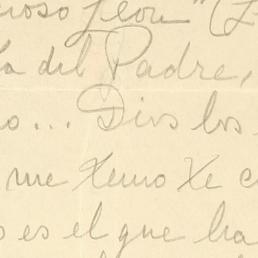 León" (L
a del Padre,
o... Dios los
me Xemo Xe c
o es el que ha